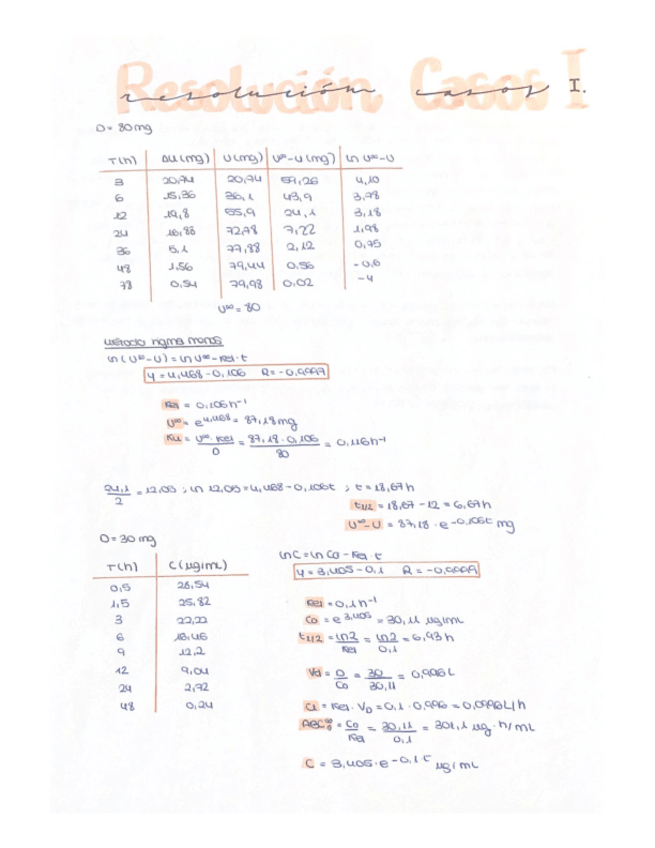 Resolución Casos I
resolución casos I.
D = 80mg
T(h) ΔU(mg) U(mg) U∞-U(mg) ln U∞-U
3 20,74 20,74 59,26 4,10
6 15,36 36,1 43,9 3,78
12 19,8 55,9 24,1 3,18
24 16,88 72,78 7,22 1,98
36 5,1 77,88 2,12 0,75
48 1,56 79,44 0,56 -0,6
78 0,54 79,98 0,02 -4
U∞ = 80
Método sigma menos
ln(U∞-U) = ln U∞ - Kel·t
y = 4,468 - 0,106 R = -0,9997
Kel = 0,106 h⁻¹
U∞ = e^4,468 = 87,18mg
Ku = U∞·Kel/D = 87,18·0,106/80 = 0,116h⁻¹
24,1/2 = 12,05 ; ln 12,05 = 4,468 - 0,106t ; t = 18,67h
t1/2 = 18,67 - 12 = 6,67h
U∞-U = 87,18 · e^-0,106t mg
D = 30 mg
T(h) C(µg/mL)
0,5 28,54
1,5 25,82
3 22,22
6 16,46
9 12,2
12 9,04
24 2,72
48 0,24
ln C = ln C0 - Kel·t
y = 3,405 - 0,1 R = -0,9999
Kel = 0,1 h⁻¹
C0 = e^3,405 = 30,11 µg/mL
t1/2 = ln2/Kel = ln2/0,1 = 6,93 h
Vd = D/C0 = 30/30,11 = 0,996 L
Cl = Kel · VD = 0,1 · 0,996 = 0,0996 L/h
ABC∞0 = C0/Kel = 30,11/0,1 = 301,1 µg·h/mL
C = 3,405·e^-0,1t µg/mL